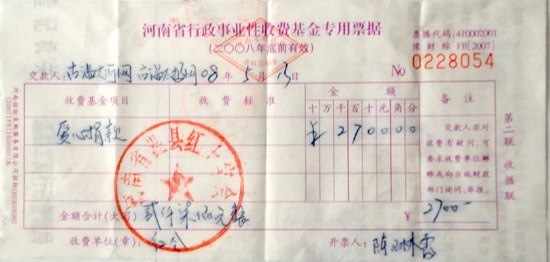 河南省行政事业性收费基金专用票据
(二○○八年底前有效)
票据代码:410002001
豫财综FB[2007]
No 0228054
交款人: 08年5月13
收费基金项目 收费标准 金额 备注
十万千百十元角分
爱心捐款 ¥270000
交款人若对
收费有疑问,可
要求收费单位解
释或向当地财政
部门询问、举报。
第二联 收据联
县红十字会
金额合计(大写) 贰仟柒佰元整 ¥ 2700-
收费单位(章): 红会 开票人: 陈